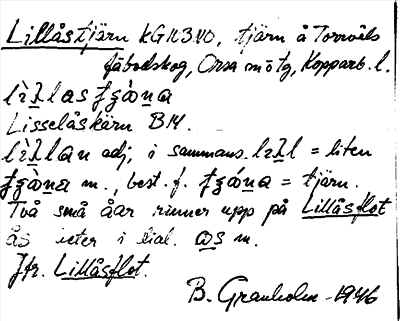 Lillåstjärn KG 11.3.NO, tjärn å Torrvåls
fäbodskog, Orsa mötg, Kopparb. l.
lìλlasʈʂä̀na
Lisselåskärn B.M.
lìλlan adj, i sammans. lıλl = liten
ʈʂä̀na m., best. f. ʈʂä́na = tjärn.
Två små åar rinner upp på Lillåsflot
ås heter i dial. ås m.
Jfr. Lillåsflot.
B. Granholm -1946